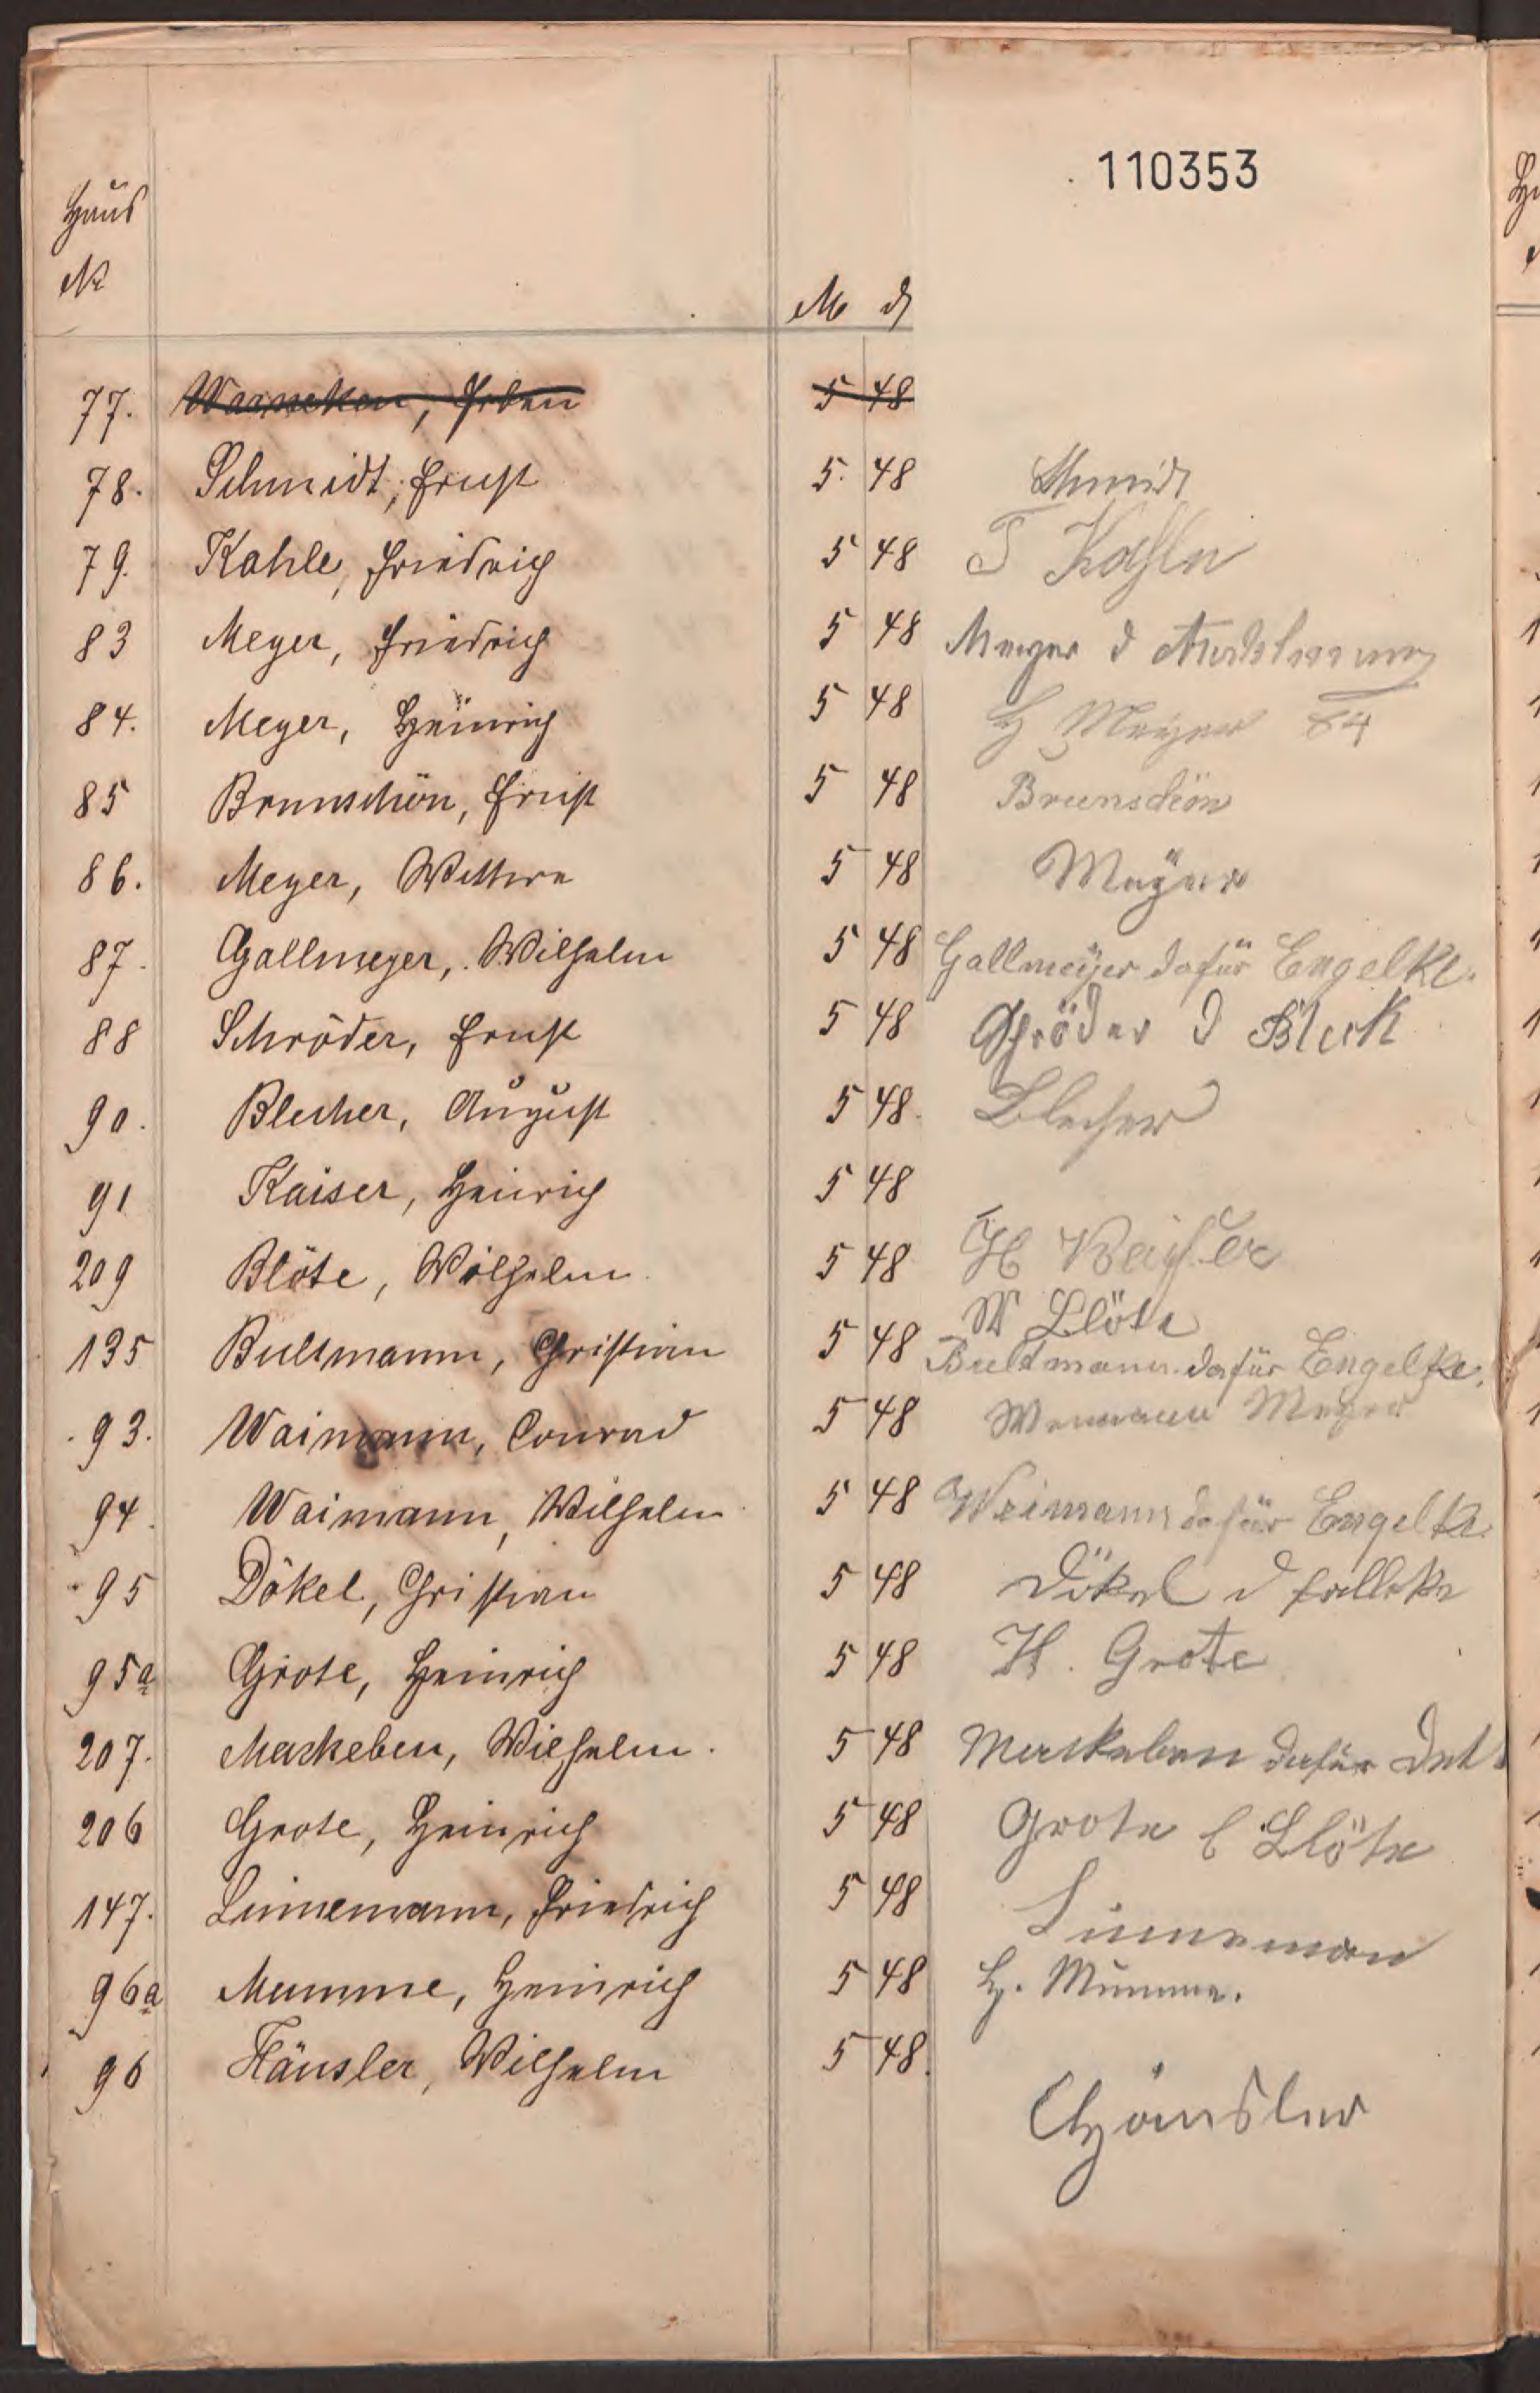 110353
Haus
No
M ₰
77. Warneken, Erben 5 48
78. Schmidt, Ernst 5. 48 Schmidt
79. Kahle, Friedrich 5 48 F Kahle
83 Meyer, Friedrich 5 48 Meyer d
84. Meyer, Heinrich 5 48 H Meyer 84
85 Brunschön, Ernst 5 48 Brunschön
86. Meyer, Wittwe 5 48 Meÿer
87. Gallmeyer, Wilhelm 5 48 Gallmeÿer dafür Engelke.
88 Schröder, Ernst 5 48 Schröder d Bleck
90. Blecher, August 5 48. Blecher
91 Kaiser, Heinrich 5 48
209 Blöte, Wilhelm 5 48 H Keiser
W Blöte
135 Bultmann, Christian 5 48 Bultmann dafür Engelke.
93. Waimann, Conrad 5 48 Meyer
94. Waimann, Wilhelm 5 48 Weimann dafür Engelke.
95 Dökel, Christian 5 48 Dökel d
95a Grote, Heinrich 5 48 H. Grote
207. Maskeben, Wilhelm. 5 48 dafür
206 Grote, Heinrich 5 48 Grote Blöte
147. Linnemann, Friedrich 5 48 Linneman
96a Mumme, Heinrich 5 48 H. Mumme.
96 Häusler, Wilhelm 5 48. Häusler